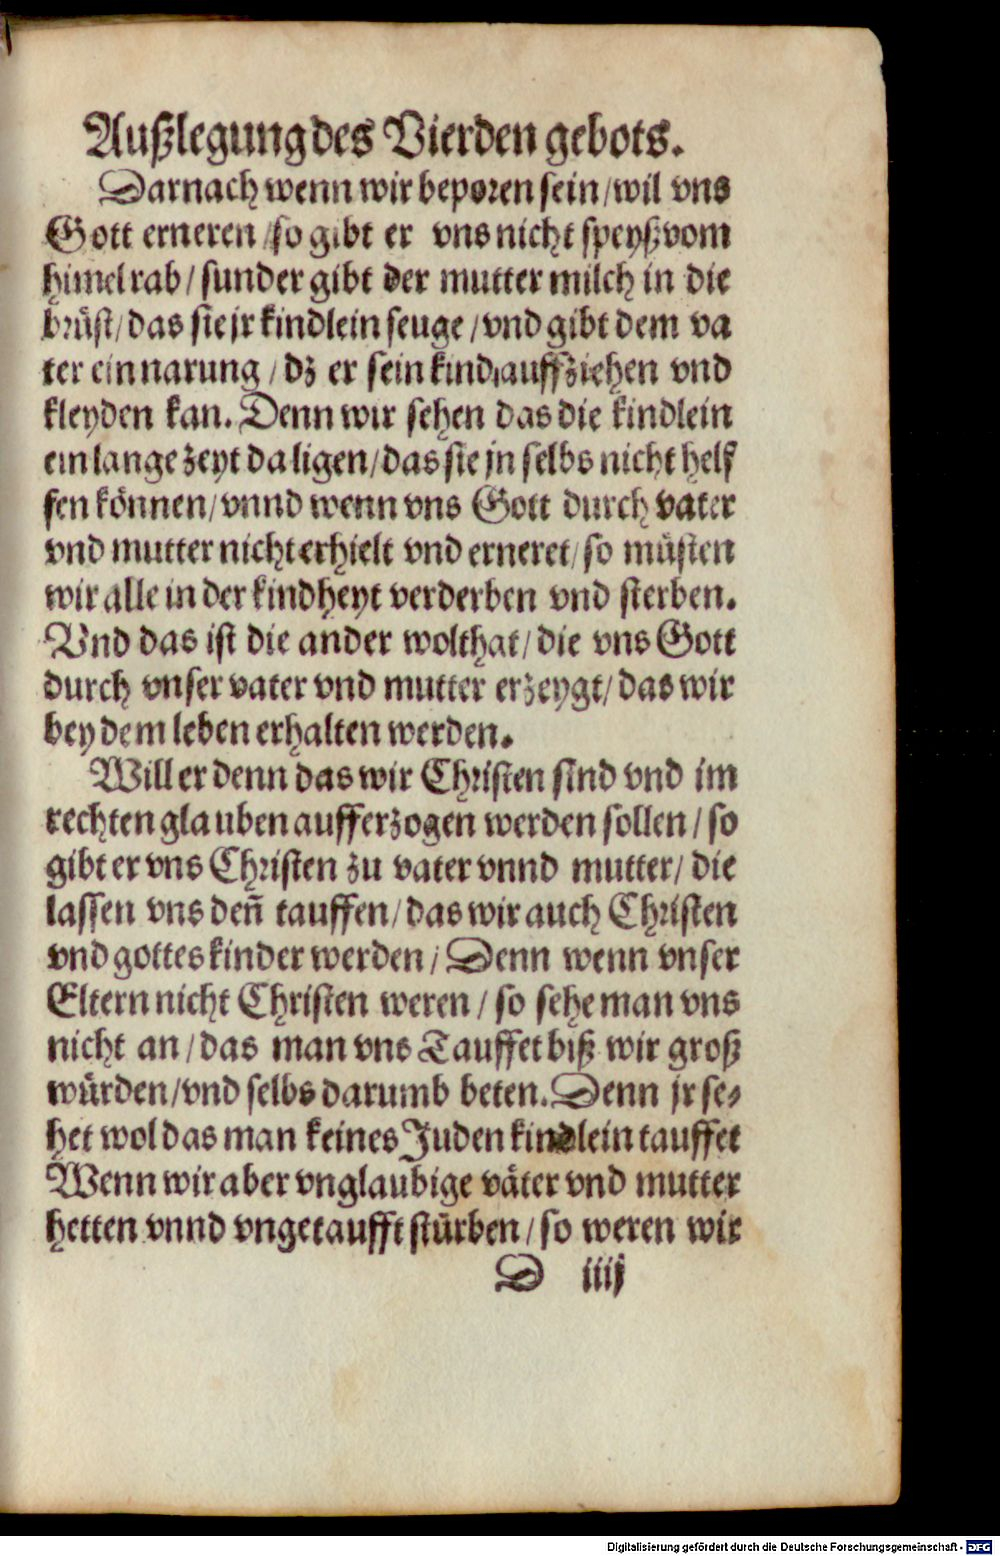 Außlegung des Vierden gebots.
Darnach wenn wir beporen sein/wil vns
Gott erneren/so gibt er vns nicht speyß vom
himel rab/sunder gibt der mutter milch in die
brüst/das sie jr kindlein seuge/vnd gibt dem va
ter ein narung/dz er sein kind auffziehen vnd
kleyden kan. Denn wir sehen das die kindlein
ein lange zeyt da ligen/das sie jn selbs nicht helf
fen können/vnnd wenn vns Gott durch vater
vnd mutter nicht erhielt vnd erneret/so müsten
wir alle in der kindheyt verderben vnd sterben.
Vnd das ist die ander wolthat/die vns Gott
durch vnser vater vnd mutter erzeygt/das wir
bey dem leben erhalten werden.
Will er denn das wir Christen sind vnd im
rechten glauben aufferzogen werden sollen/so
gibt er vns Christen zu vater vnnd mutter/die
lassen vns deñ tauffen/das wir auch Christen
vnd gottes kinder werden/Denn wenn vnser
Eltern nicht Christen weren/so sehe man vns
nicht an/das man vns Tauffet biß wir groß
würden/vnd selbs darumb beten. Denn jr se-
het wol das man keines Juden kindlein tauffet
Wenn wir aber vnglaubige väter vnd mutter
hetten vnnd vngetaufft stürben/so weren wir
D iiij
Digitalisierung gefördert durch die Deutsche Forschungsgemeinschaft - DFG